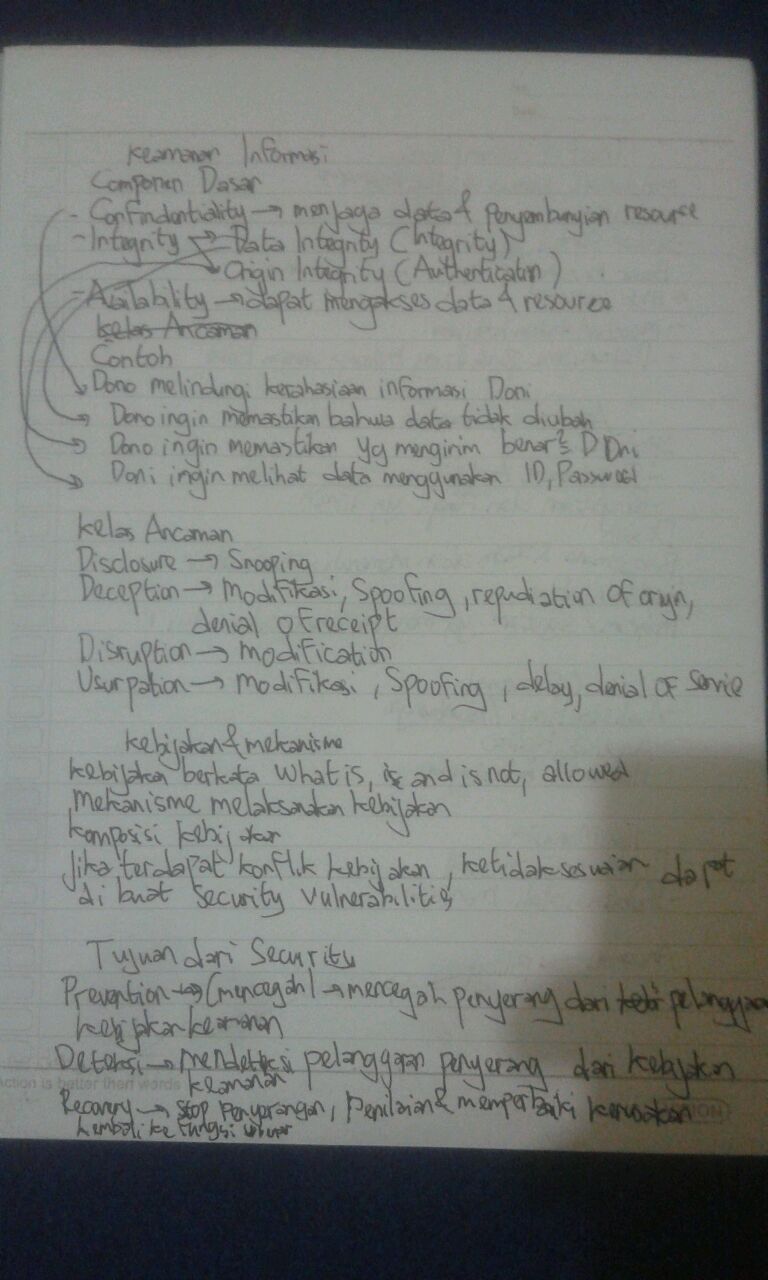 Keamanan Informasi
Componen Dasar
- Confindentiality → menjaga data & penyembunyian resource
- Integrity → Data Integrity (Integrity)
→ Origin Integrity (Authentication)
- Availability → dapat mengakses data & resource
Kelas Ancaman
Contoh
Dono melindungi kerahasiaan informasi Doni
Dono ingin memastikan bahwa data tidak diubah
Dono ingin memastikan yg mengirim benar² Doni
Doni ingin melihat data menggunakan ID, Password
Kelas Ancaman
Disclosure → Snooping
Deception → Modifikasi, Spoofing, repudiation of origin,
denial of receipt
Disruption → modification
Usurpation → modifikasi, Spoofing, delay, denial of service
Kebijakan & mekanisme
Kebijakan berkata what is, and is not, allowed
Mekanisme melaksanakan kebijakan
Komposisi kebijakan
Jika terdapat konflik kebijakan, ketidaksesuaian dapat
di buat security vulnerabilities
Tujuan dari Security
Prevention → (mencegah) → mencegah penyerang dari pelanggaran
kebijakan keamanan
Deteksi → mendeteksi pelanggaran penyerang dari kebijakan
keamanan
Action is better then words
Recovery → stop penyerangan, Penilaian & memperbaiki kerusakan
kembali ke fungsi